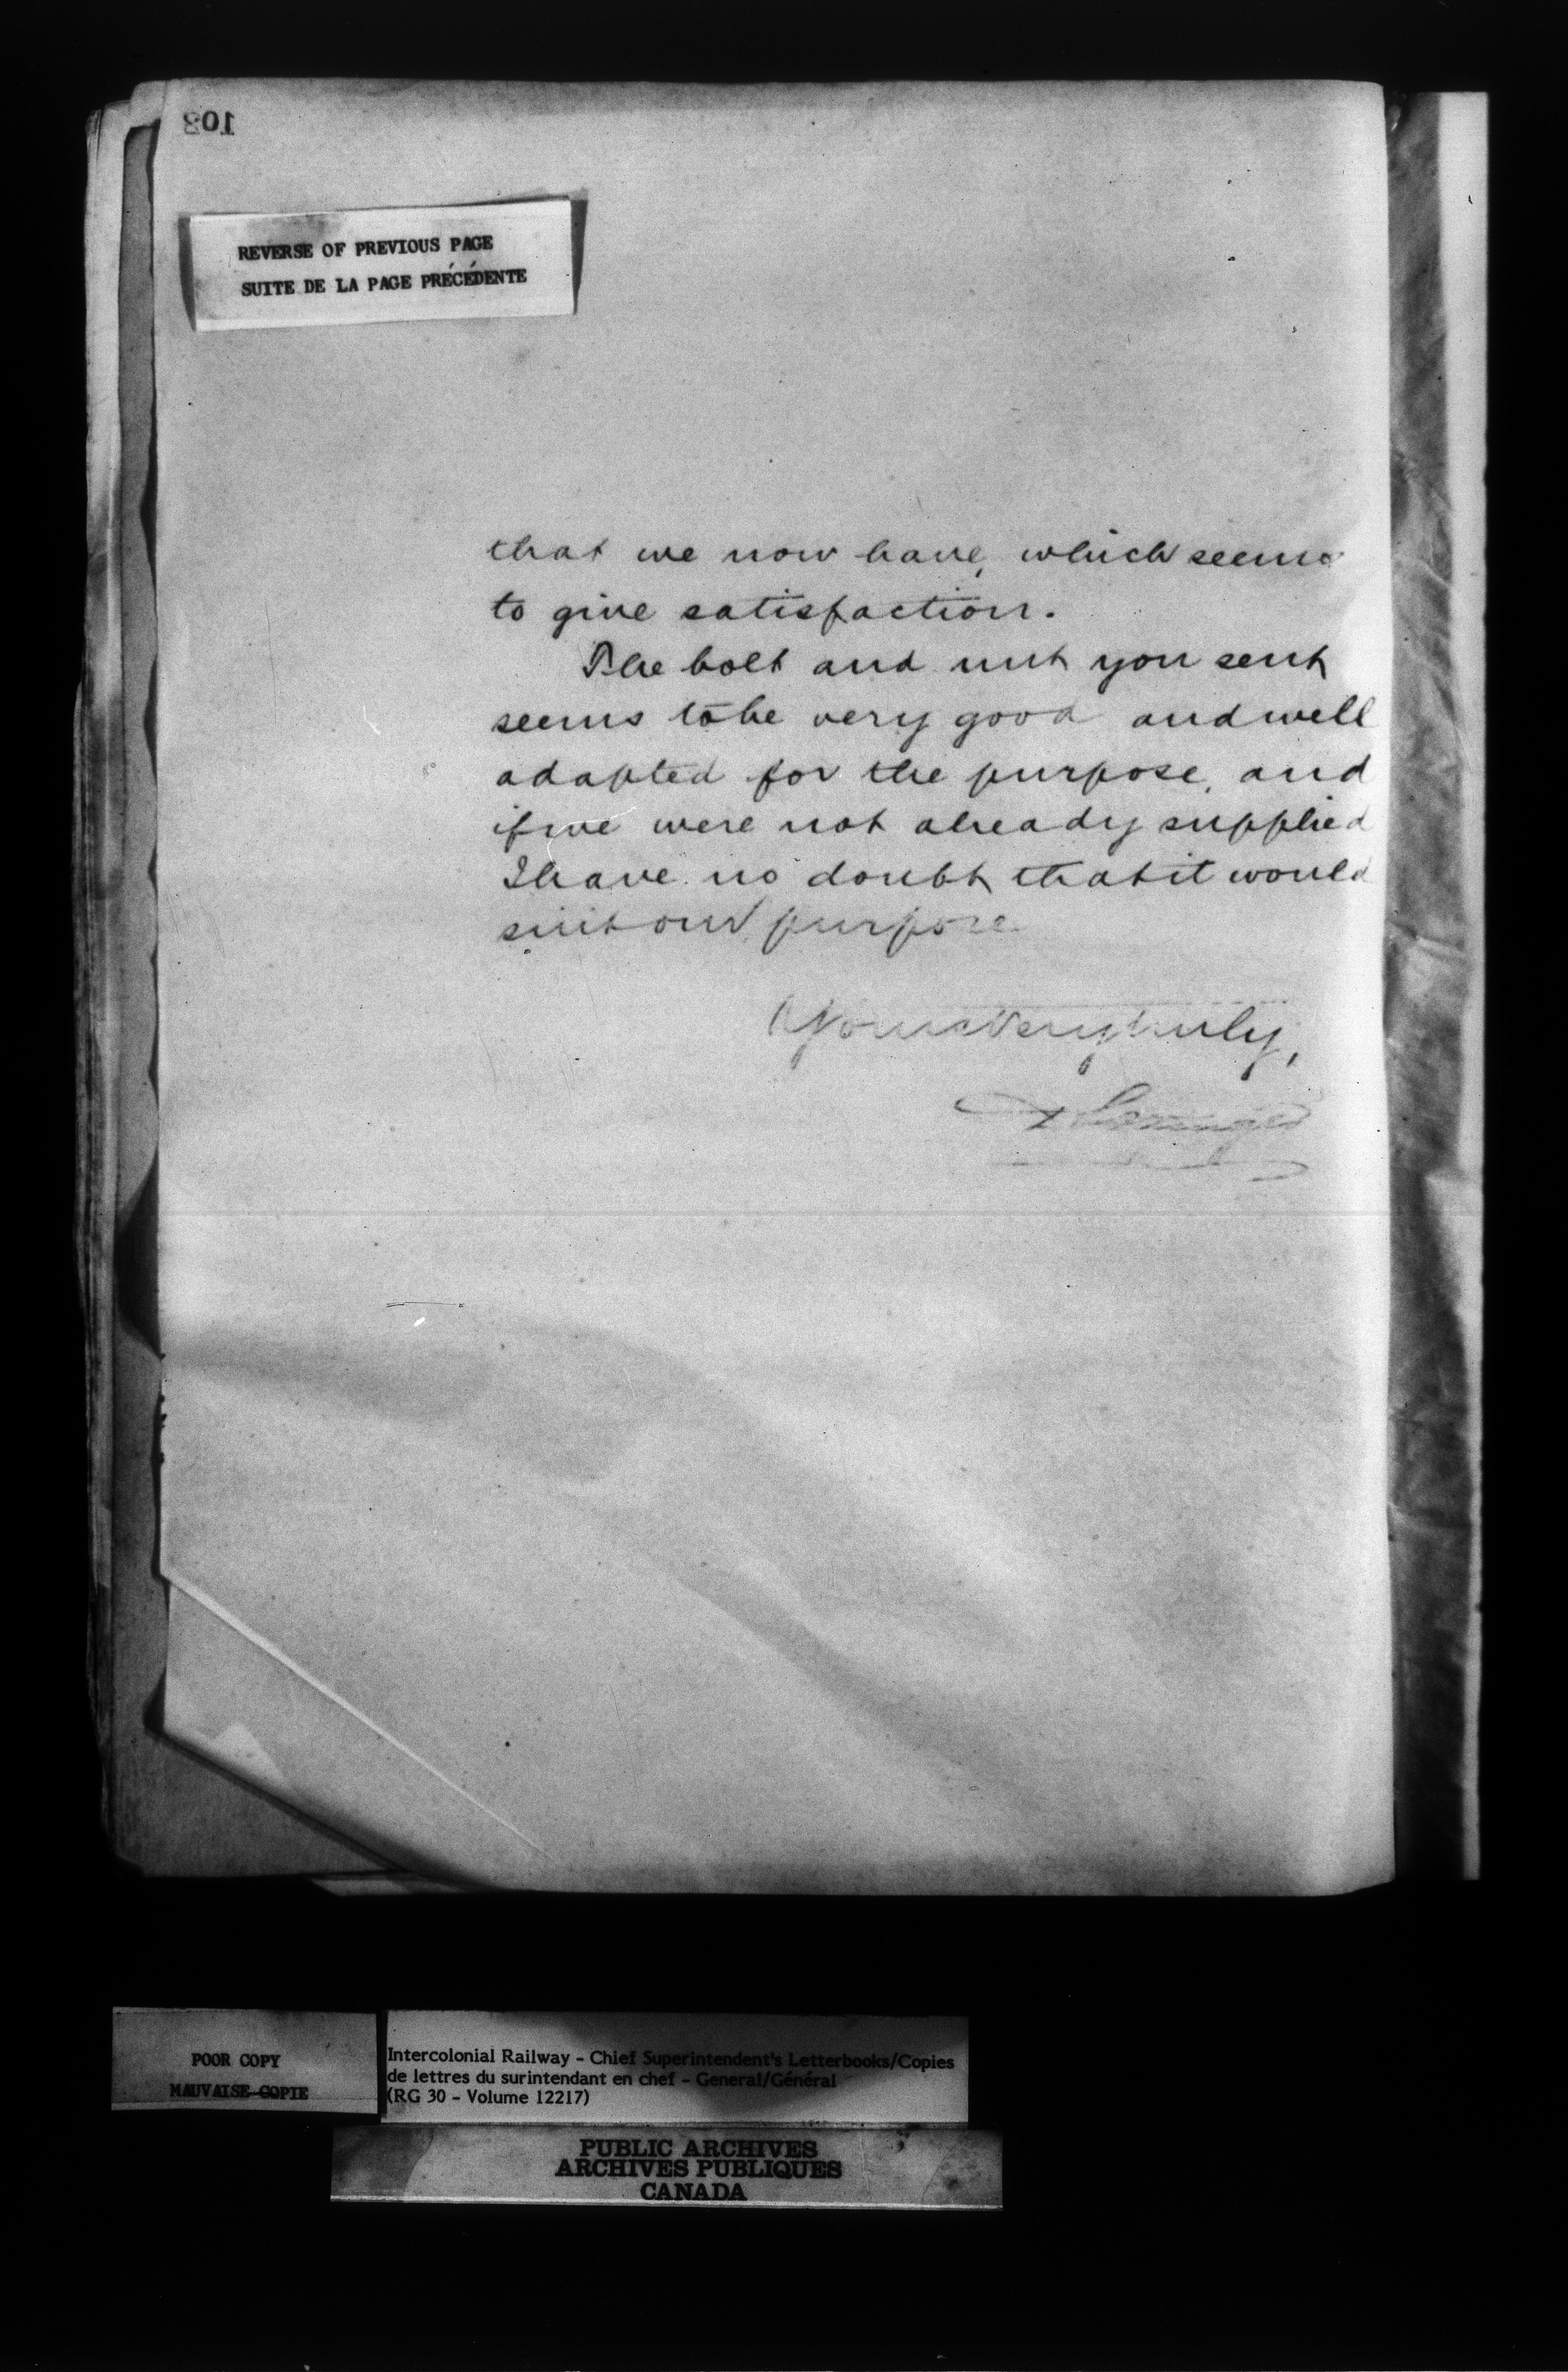 103
REVERSE OF PREVIOUS PAGE
SUITE DE LA PAGE PRÉCÉDENTE
that we now have, which seems
to give satisfaction.
The bolt and nut you sent
seems to be very good and well
adapted for the purpose, and
if we were not already supplied
I have no doubt that it would
suit our purpose
Yours very truly,
POOR COPY
MAUVAISE COPIE
Intercolonial Railway - Chief Superintendent's Letterbooks/Copies
de lettres du surintendant en chef - General/Général
(RG 30 - Volume 12217)
PUBLIC ARCHIVES
ARCHIVES PUBLIQUES
CANADA